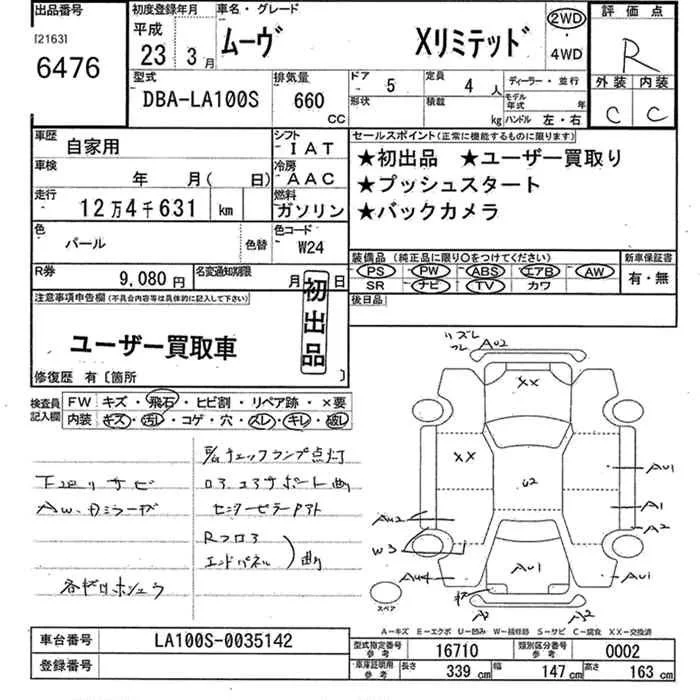 出品番号
[2163]
6476
初度登録年月
平成
23年 3月
車名・グレード
ムーヴ Xリミテッド
2WD
・
4WD
評価点
R
外装 内装
C C
型式
DBA-LA100S
排気量
660
CC
ドア
5
形状
定員
4人
積載
kg
ディーラー・並行
モデル年式 年
ハンドル 左・右
車歴
自家用
シフト
IAT
車検
年 月( 日)
冷房
AAC
走行
12万4千631 km
燃料
ガソリン
色
パール
色替
色コード
W24
R券
9,080円
名変通知期限
月 日
セールスポイント(正常に機能するものに限ります)
★初出品 ★ユーザー買取り
★プッシュスタート
★バックカメラ
装備品(純正品に限り○をつけてください)
PS PW ABS エアB AW
SR ナビ TV カワ
新車保証書
有・無
後日品
注意事項申告欄(不具合内容等は具体的に記入して下さい)
初出品
ユーザー買取車
修復歴 有〔箇所 〕
検査員記入欄
FW キズ・飛石・ヒビ割・リペア跡・×要
内装 キズ・汚レ・コゲ・穴・スレ・キレ・破レ
チェックランプ点灯
下廻りサビ
コアサポート曲
AW、Dミラーキズ
センターピラーアト
Rフロア
エンドパネル
曲
各ゲロホシュウ
ズレ
フレ
A02
XX
XX
U2
AU1
A1
A2
AU2
W3
AU4
AU1
AU1
A2
A32
スペア
A-キズ E-エクボ U-凹み W-補修跡 S-サビ C-腐食 XX-交換済
車台番号
LA100S-0035142
登録番号
型式指定番号 参考
16710
類別区分番号 参考
0002
車庫証明用 参考
長さ 339cm 幅 147cm 高さ 163cm